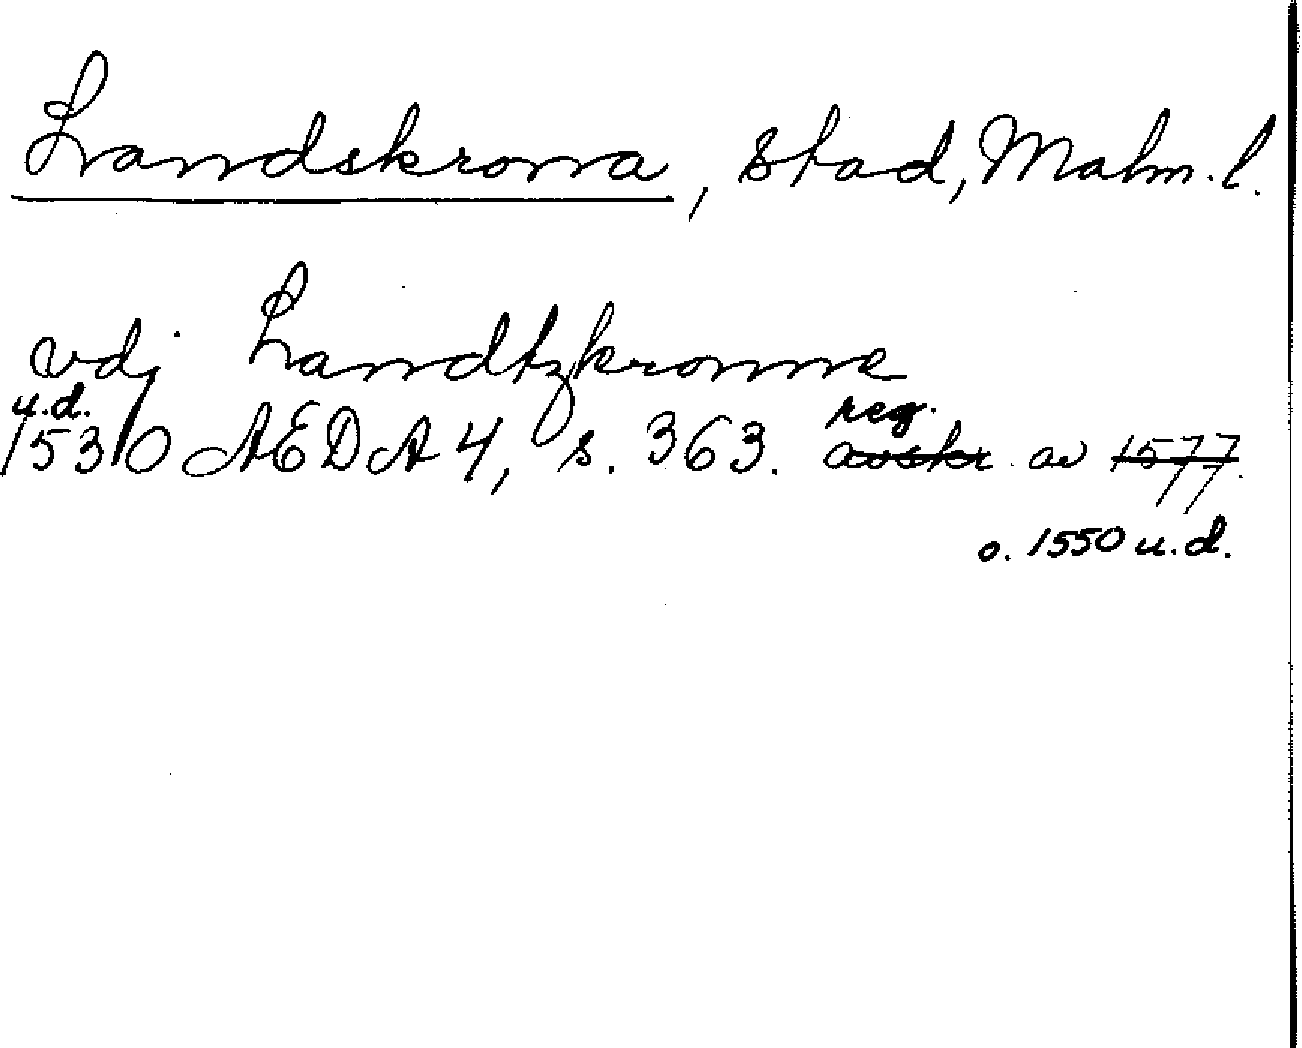 Landskrona, stad, Malm. l.
vdj Landtzkronne
u.d. reg.
1530 AEDA 4, s. 363. avskr. av 1577.
o. 1550 u.d.